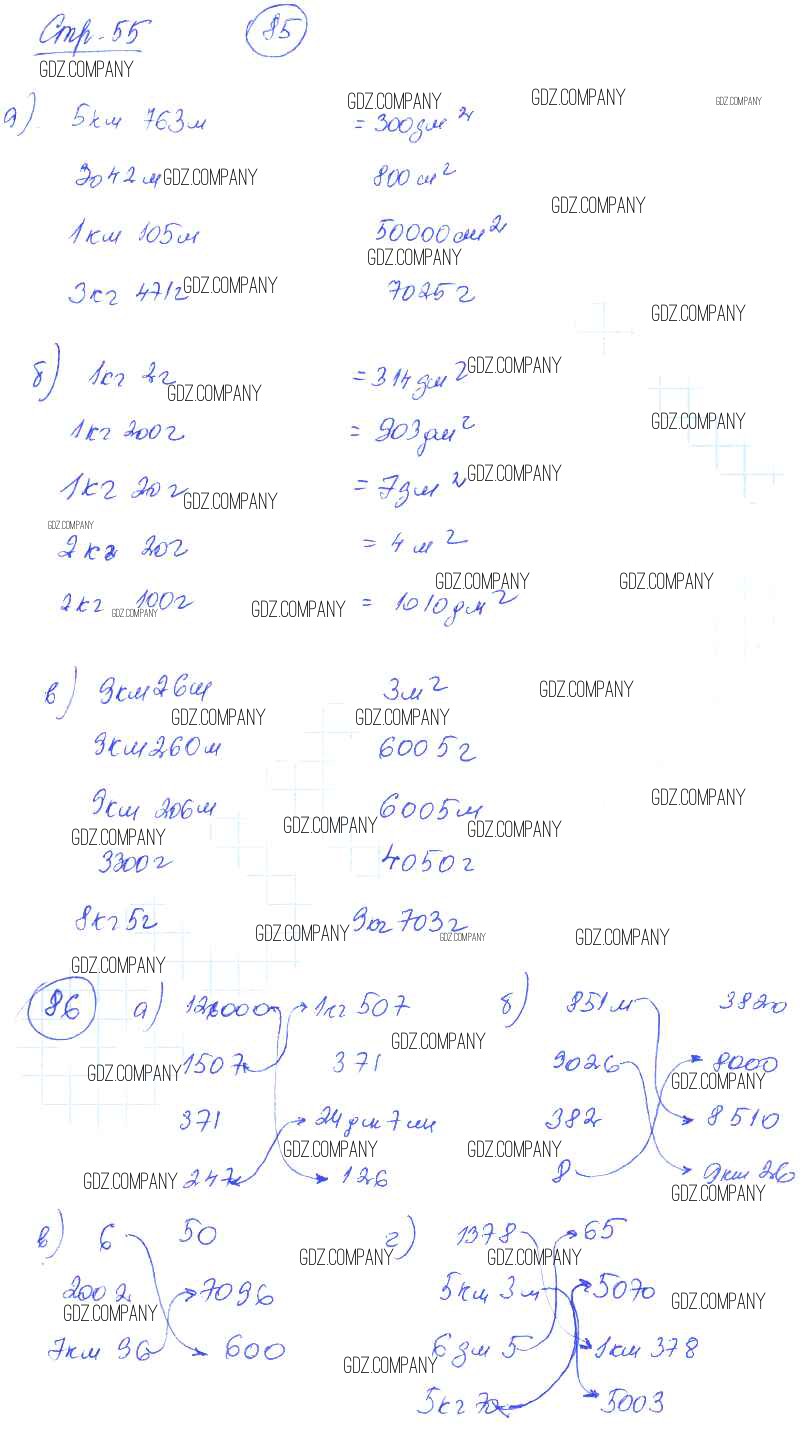 Стр. 55 85
GDZ.COMPANY
GDZ.COMPANY GDZ.COMPANY GDZ.COMPANY
а) 5км 763м = 300дм²
3042м GDZ.COMPANY 800см²
GDZ.COMPANY
1км 105м 50000см²
GDZ.COMPANY
3кг 471г GDZ.COMPANY 7025г
GDZ.COMPANY
б) 1кг 2г = 314дм² GDZ.COMPANY
GDZ.COMPANY
1кг 200г = 903дм² GDZ.COMPANY
1кг 20г = 7дм² GDZ.COMPANY
GDZ.COMPANY
GDZ.COMPANY
2кг 20г = 4м²
GDZ.COMPANY GDZ.COMPANY
2кг 100г GDZ.COMPANY = 1010дм²
GDZ.COMPANY
в) 9км 26м 3м² GDZ.COMPANY
GDZ.COMPANY GDZ.COMPANY
9км 260м 6005г
GDZ.COMPANY
9км 206м 6005м
GDZ.COMPANY GDZ.COMPANY GDZ.COMPANY
3300г 4050г
8кг 5г GDZ.COMPANY 9кг 703г
GDZ.COMPANY GDZ.COMPANY
GDZ.COMPANY
86 а) 126000 1кг 507 б) 851м 3820
GDZ.COMPANY
GDZ.COMPANY 1507 371 9026 8000
GDZ.COMPANY
371 24дм 7см 382 8510
GDZ.COMPANY GDZ.COMPANY
GDZ.COMPANY 247 126 8 9км 26
GDZ.COMPANY
в) 6 50 г) 1378 65
GDZ.COMPANY GDZ.COMPANY
2002 7096 5км 3м 5070
GDZ.COMPANY GDZ.COMPANY
7км 96 600 6дм 5 1км 378
GDZ.COMPANY
5кг 70 5003